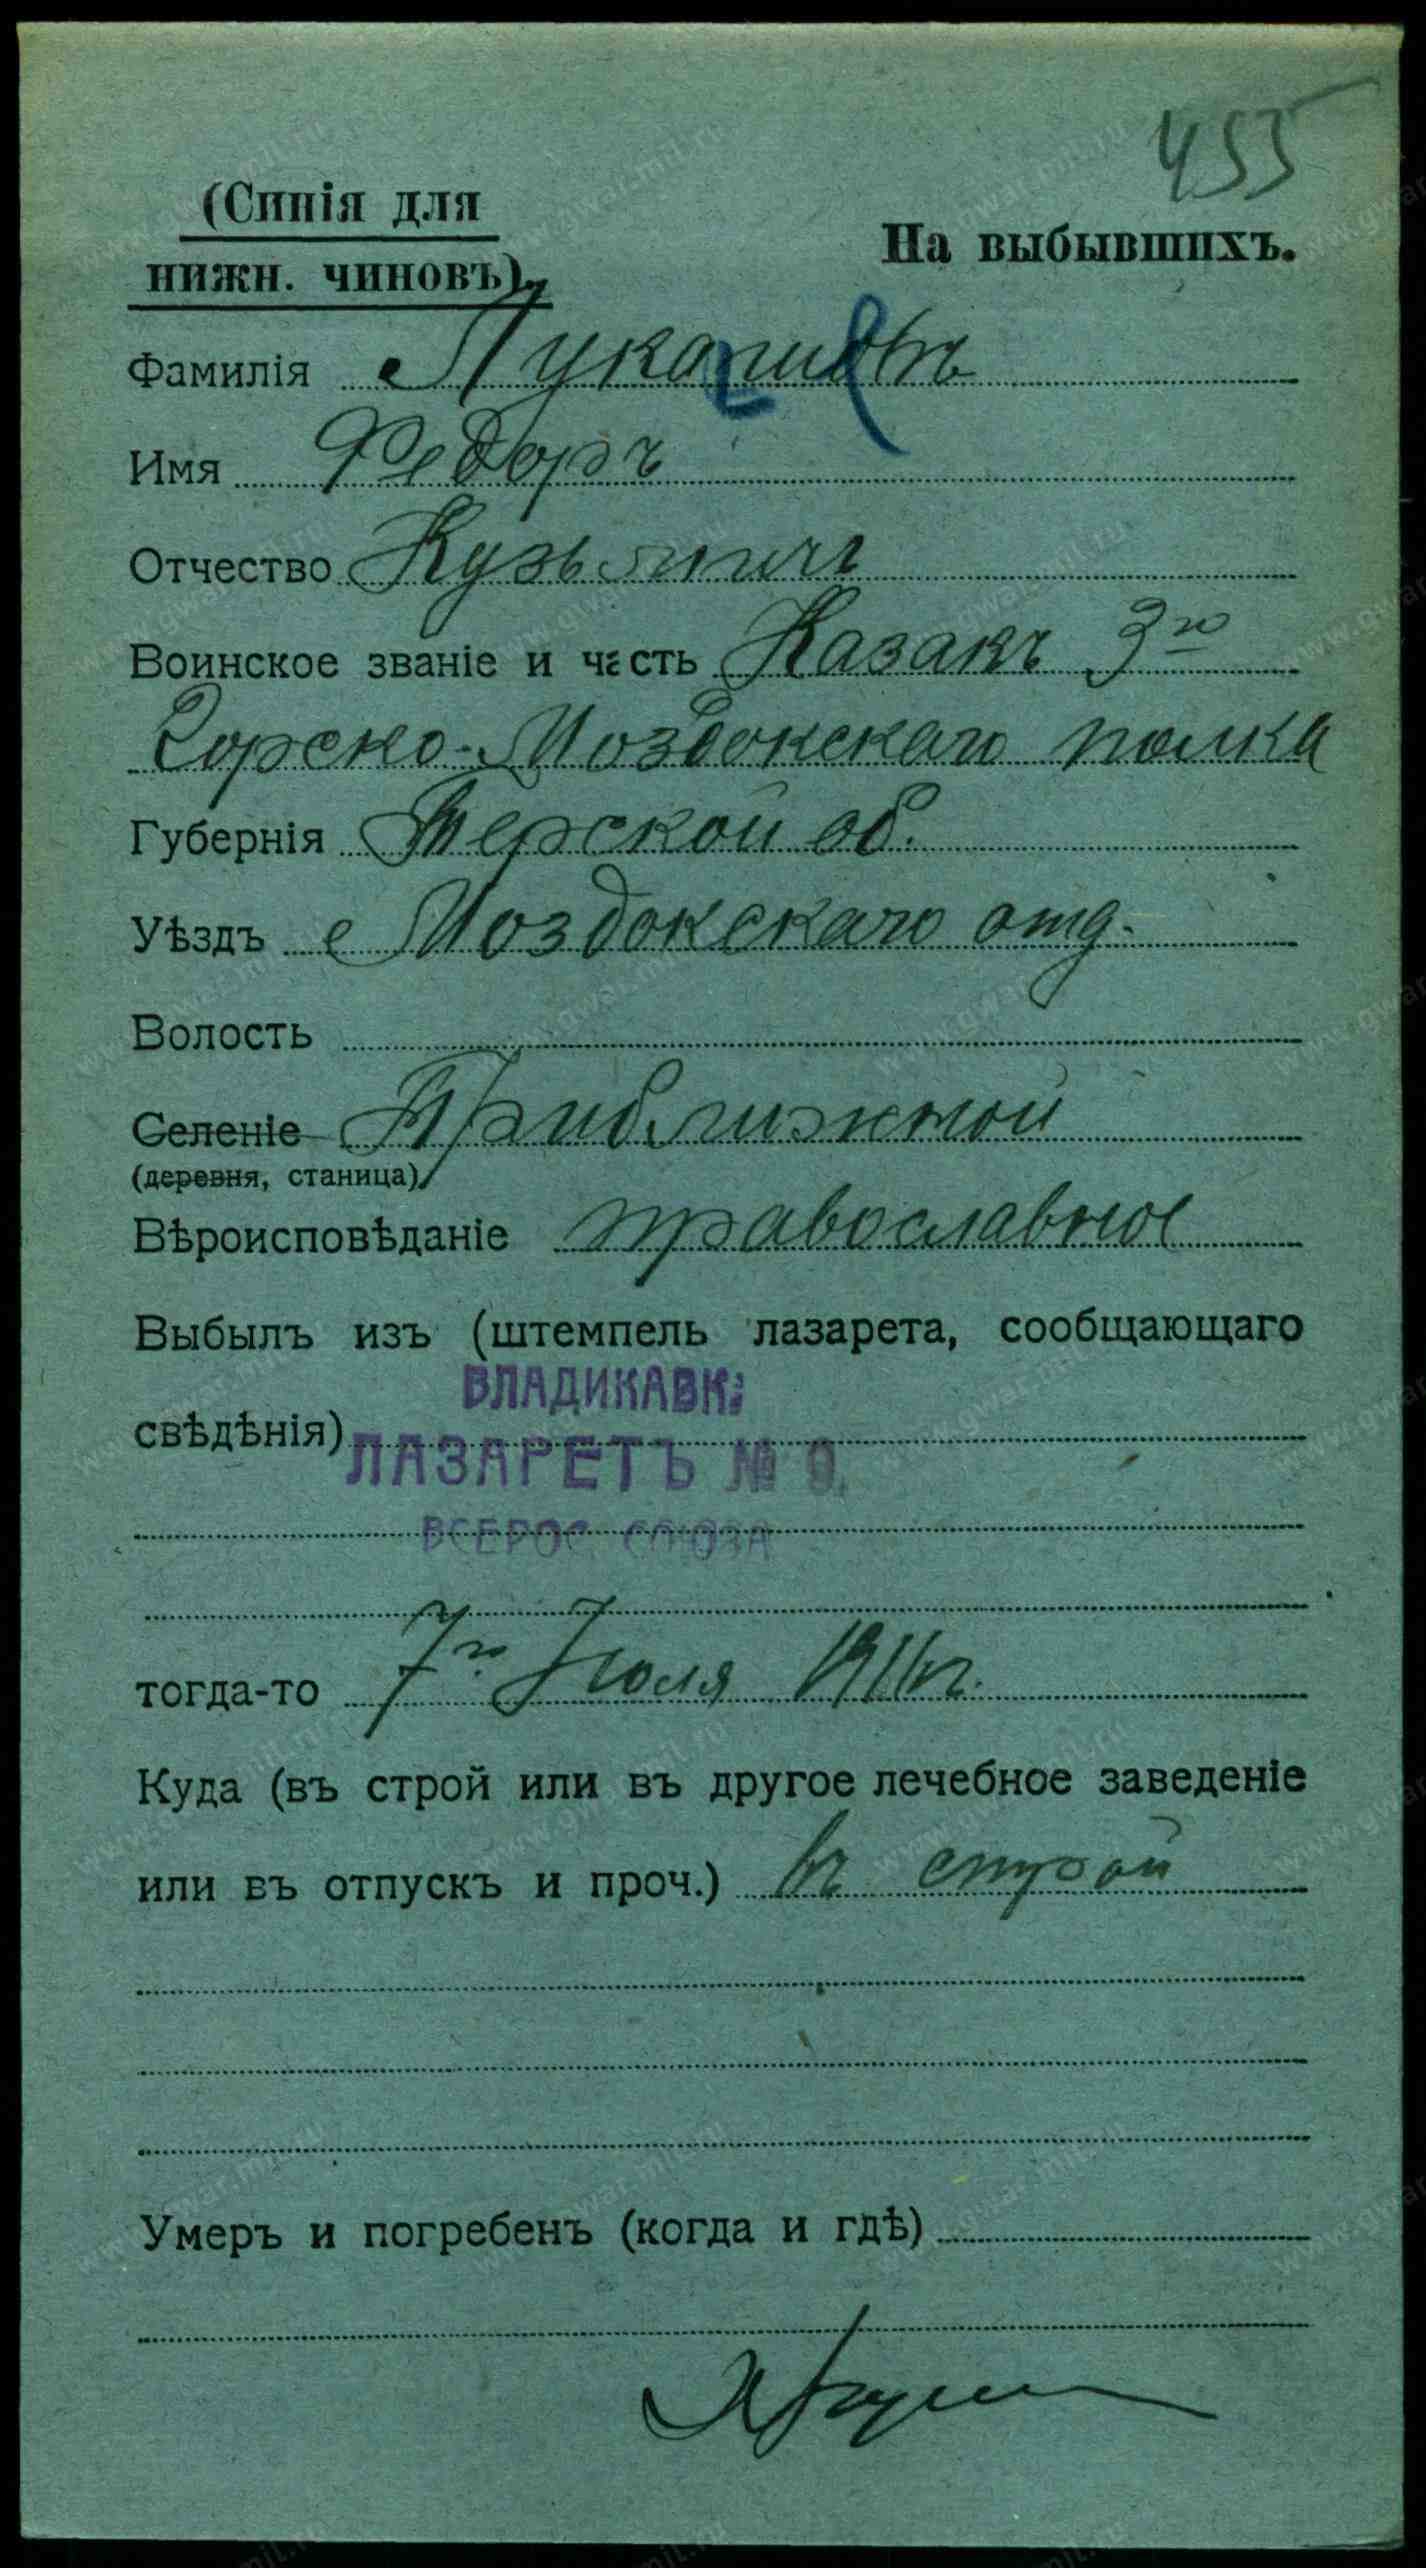 455
(Синія для
нижн. чиновъ).
На выбывшихъ.
Фамилія Лукашовъ
Имя Федоръ
Отчество Кузьмичъ
Воинское званіе и часть Казакъ 3го
Горско-Моздокскаго полка
Губернія Терской об.
Уѣздъ Моздокскаго отд.
Волость
Селеніе Приближной
(деревня, станица)
Вѣроисповѣданіе православное
Выбылъ изъ (штемпель лазарета, сообщающаго
ВЛАДИКАВК.
свѣдѣнія)
ЛАЗАРЕТЪ №
ВСЕРОС. СОЮЗА
тогда-то 7го Іюля 191 г.
Куда (въ строй или въ другое лечебное заведеніе
или въ отпускъ и проч.) въ строй
Умеръ и погребенъ (когда и гдѣ)
www.gwar.mil.ru